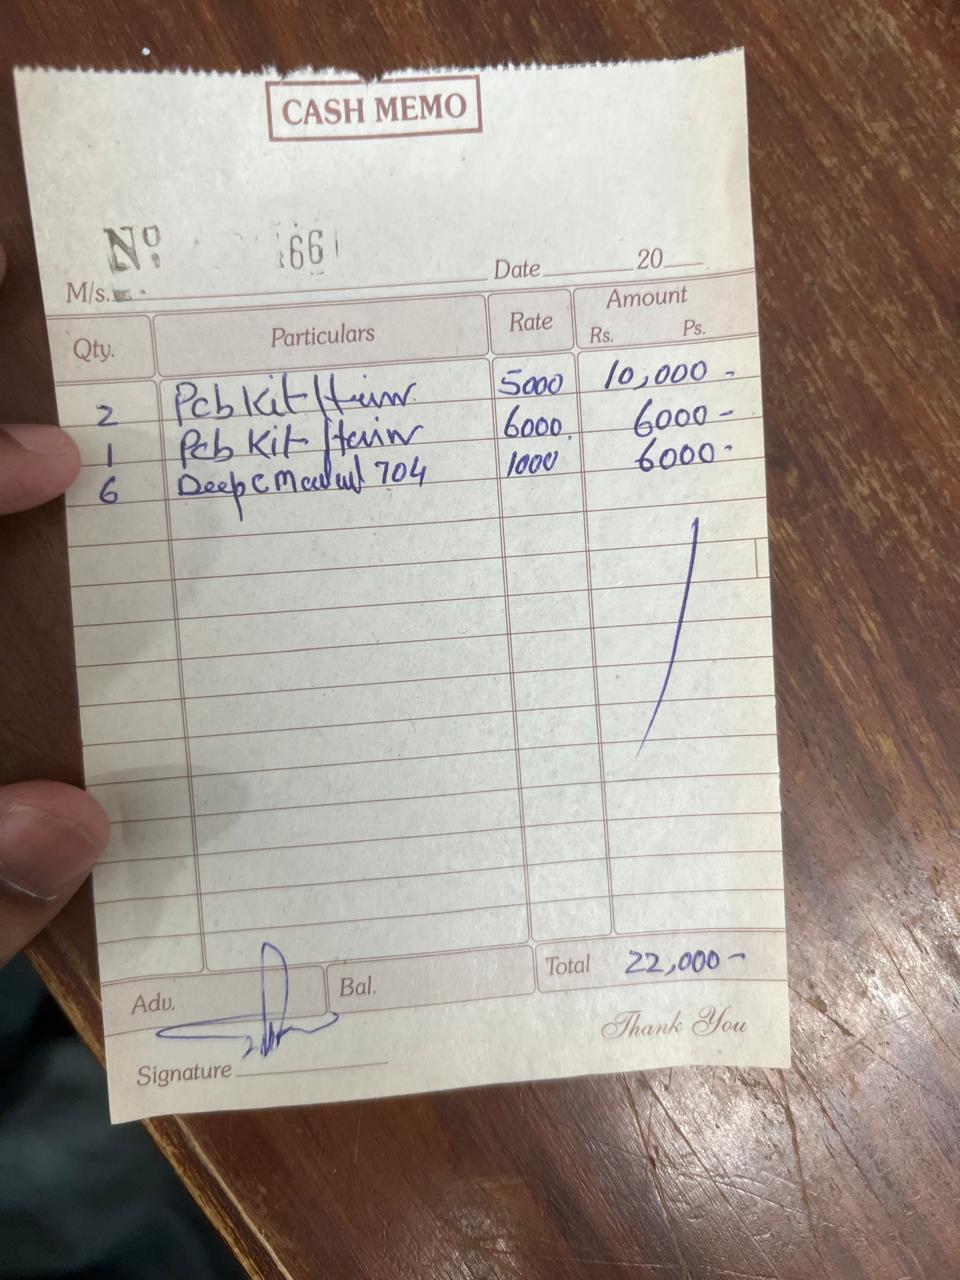 CASH MEMO
No 661
M/s. Date 20
Qty. Particulars Rate Amount
Rs. Ps.
2 Pcb Kit 5000 10,000 -
1 Pcb Kit 6000 6000 -
6 Deep C 704 1000 6000 -
Adv. Bal. Total 22,000 -
Thank You
Signature